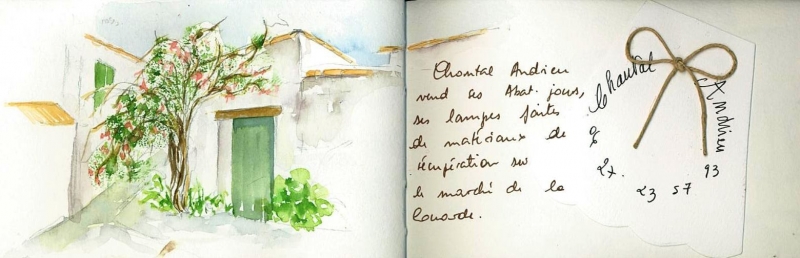 Chantal Andrieu
vend ses Abat. jours,
ses lampes faites
de matériaux de
récupération sur
le marché de la
Couarde.
Chantal
Andrieu
06
27.
23
57
93